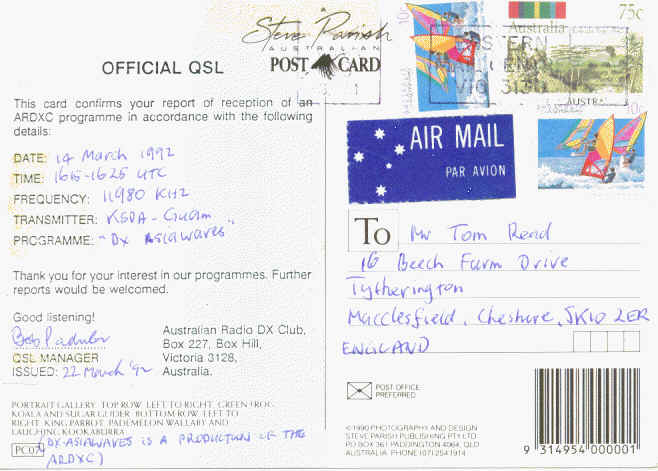 OFFICIAL QSL
This card confirms your report of reception of an
ARDXC programme in accordance with the following
details:
DATE: 14 March 1992
TIME: 1615-1625 UTC
FREQUENCY: 11980 KHZ
TRANSMITTER: KSDA - Guam
PROGRAMME: "DX Asiawaves"
Thank you for your interest in our programmes. Further
reports would be welcomed.
Good listening!
Bob Padula
QSL MANAGER
ISSUED: 22 March '92
Australian Radio DX Club,
Box 227, Box Hill,
Victoria 3128,
Australia.
PORTRAIT GALLERY: TOP ROW, LEFT TO RIGHT, GREEN FROG,
KOALA AND SUGAR GLIDER. BOTTOM ROW, LEFT TO
RIGHT: KING PARROT, PADEMELON WALLABY AND
LAUGHING KOOKABURRA
PC07
(DX ASIAWAVES IS A PRODUCTION OF THE
ARDXC)
Steve Parish
AUSTRALIAN
POST CARD
Australia
75c
EASTERN
VIC 3130
AUSTRA
AIR MAIL
PAR AVION
To Mr Tom Read
16 Beech Farm Drive
Tytherington
Macclesfield, Cheshire, SK10 2ER
ENGLAND
POST OFFICE
PREFERRED
© 1990 PHOTOGRAPHY AND DESIGN
STEVE PARISH PUBLISHING PTY LTD
PO BOX 361 PADDINGTON 4064, QLD
AUSTRALIA PHONE (07) 254 1914
9 314954 000001